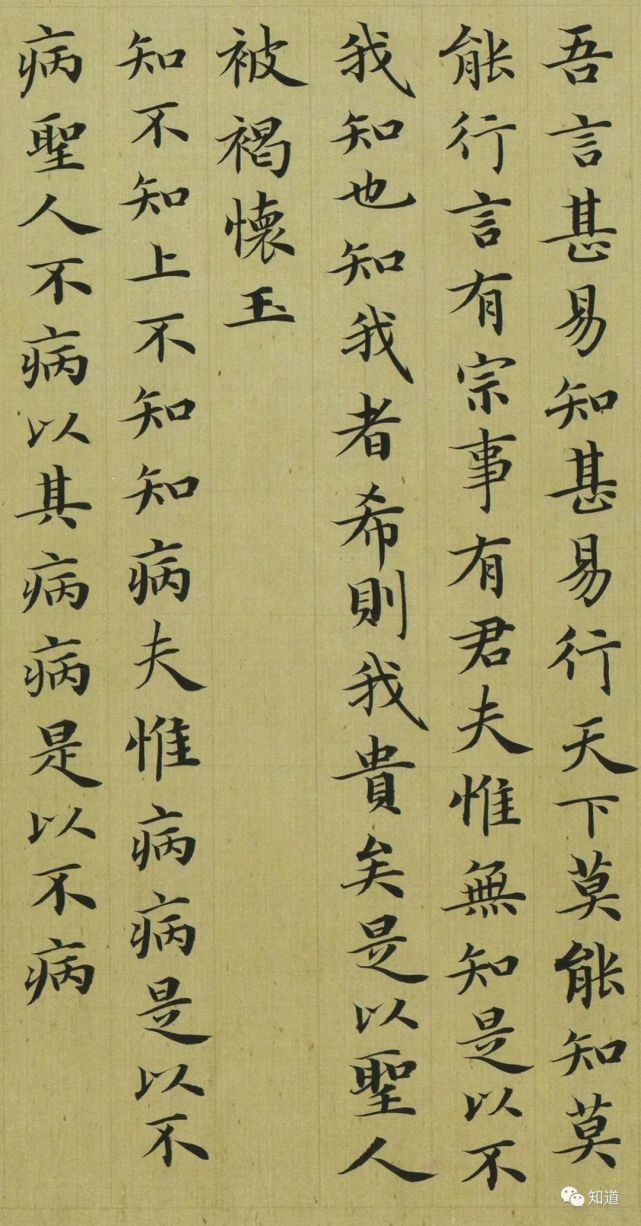 吾言甚易知甚易行天下莫能知莫
能行言有宗事有君夫惟無知是以不
我知也知我者希則我貴矣是以聖人
被褐懷玉
知不知上不知知病夫惟病病是以不
病聖人不病以其病病是以不病
知道